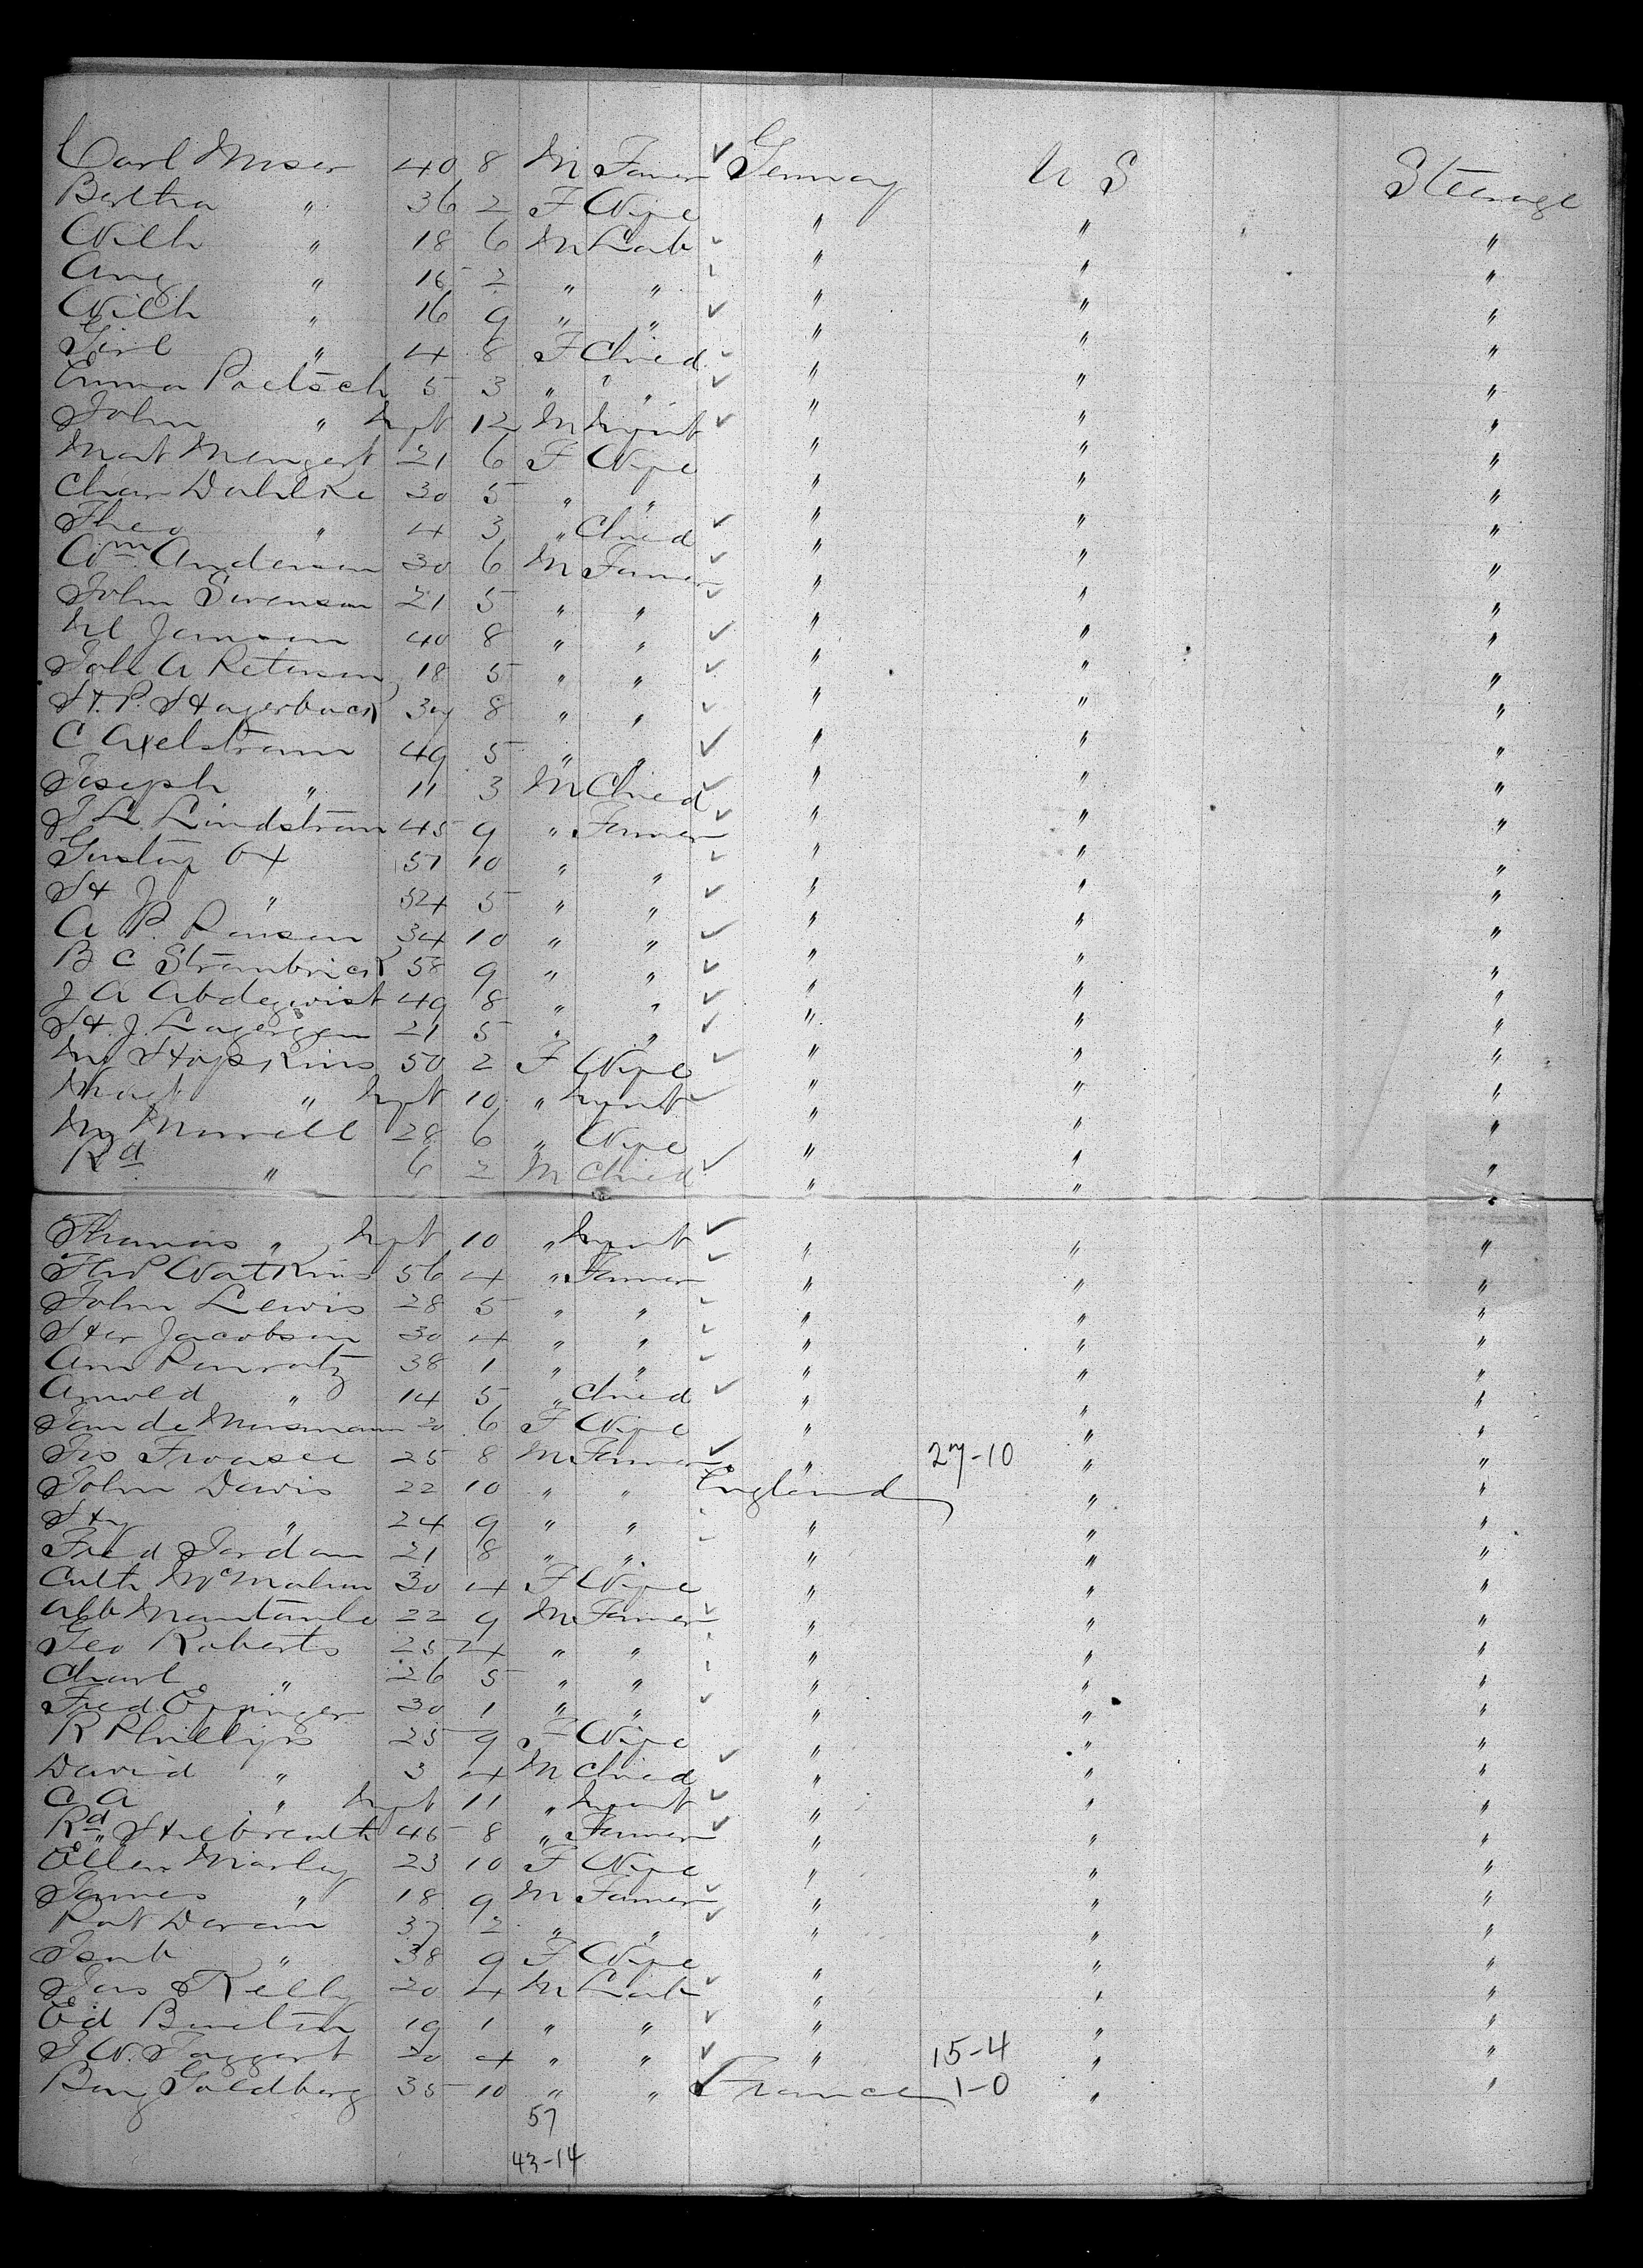 Carl Miser 40 8 M Famer ✓ Germany U S Steerage
Bertha " 36 2 F Wife " " "
Wilh " 18 6 M Lab ✓ " " "
Aug " 16 2 " " ✓ " " "
Wilh " 16 9 " " ✓ " " "
Girl " 4 8 F Chied ✓ " " "
Emma Poetsch 5 3 " " ✓ " " "
John " Inft 12 M Infant ✓ " " "
Mart Mengert 21 6 F Wife " " "
Char Dahlke 30 5 " " " " "
Theo " 4 3 " Chied ✓ " " "
Wm Anderson 30 6 M Famer ✓ " " "
John Swenson 21 5 " " ✓ " " "
Jamson 40 8 " " ✓ " " "
Joh A Peterson 18 5 " " ✓ " " "
H. P. Hagerback 39 8 " " ✓ " " "
C Axelstrom 49 5 " " ✓ " " "
Joseph " 11 3 M Chied ✓ " " "
J L Lindstrom 45 9 " Famer ✓ " " "
Gustaf Ox 57 10 " " ✓ " " "
H J " 52 5 " " ✓ " " "
A P. Ronson 34 10 " " ✓ " " "
B C Strombrick 58 9 " " ✓ " " "
J A Abdeqvist 49 8 " " ✓ " " "
H. J. Lagergen 21 5 " " ✓ " " "
My Hopkins 50 2 F Wife ✓ " " "
" Inft 10 " Infant ✓ " " "
My Morrell 28 6 " Wife " " "
Rd " 6 2 M Chied ✓ " " "
Thomas " Inft 10 " Infant ✓ " " "
Watkins 56 4 " Famer ✓ " " "
John Lewis 28 5 " " ✓ " " "
Jacobson 30 4 " " ✓ " " "
Ann 38 1 " " ✓ " " "
Arnold " 14 5 " Chied ✓ " " "
Musmann 20 6 F Wife " " "
25 8 M Famer ✓ " 27-10 " "
John Davis 22 10 " " England " "
Hy " 24 9 " " ✓ " " "
Fred Jordan 21 8 " " ✓ " " "
Cath McMahon 30 4 F Wife " " "
Alb 22 9 M Famer ✓ " " "
Geo Roberts 25 4 " " ✓ " " "
Charl " 26 5 " " ✓ " " "
Fred Eppinger 30 1 " " ✓ " " "
R Phillips 25 9 F Wife " " "
David " 3 4 M Chied ✓ " " "
C A " Inft 11 " Infant ✓ " " "
Rd Hilbreath 45 8 " Famer ✓ " " "
Ellen Marley 23 10 F Wife " " "
James " 18 9 M Famer ✓ " " "
Pat Doran 37 2 " " ✓ " " "
Isab " 38 9 F Wife " " "
Jas Kelly 20 4 M Lab ✓ " " "
Ed Burton 19 1 " " ✓ " " "
J W. Taggart 20 4 " " ✓ " 15-4 " "
Benj Goldberg 35 10 " " ✓ France 1-0 " "
57
43-14